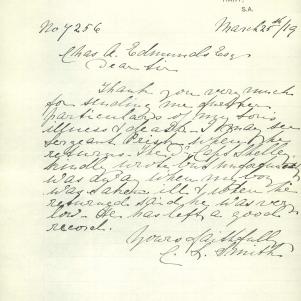 S.A.
No 7256 March 25th/19
Chas A. Edmunds Esq
Dear Sir
Thank you very much
for sending me further
particulars of my son's
illness & death - I may see
Sergeant when he
returns.
kindly wrote but
was away when my boy
was taken ill & when he
returned said he was very
low - He has left a good
record.
Yours faithfully
C. L. Smith